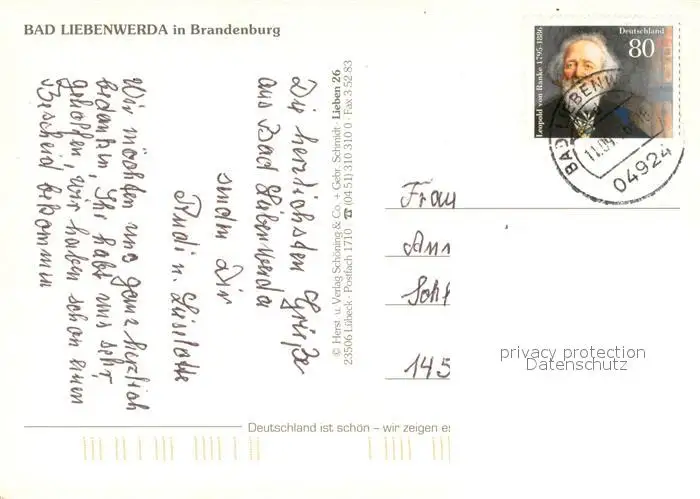 BAD LIEBENWERDA in Brandenburg
Die herzlichsten Grüße
aus Bad Liebenwerda
senden Dir
Rudi u. Liselotte
Wir möchten uns ganz herzlich
bedanken, Ihr habt uns sehr
geholfen, wir haben schon einen
Bescheid bekommen
© Herst. u. Verlag Schöning & Co. + Gebr. Schmidt · Lieben 26
23506 Lübeck · Postfach 1710 · ☎ (04 51) 310 310 0 · Fax 3 52 83
Deutschland
80
Leopold von Ranke 1795-1886
BAD LIEBENW
11.09.
04924
Frau
Ann
Soh
145
privacy protection
Datenschutz
Deutschland ist schön – wir zeigen es